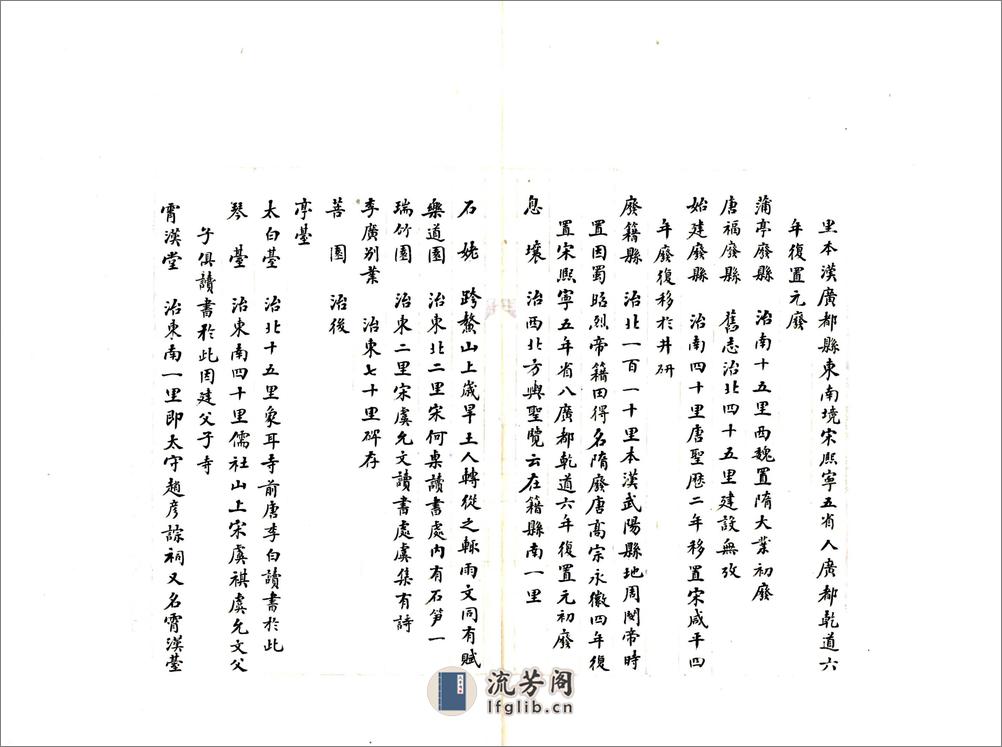 里本漢廣都縣東南境宋熙寧五省入廣都乾道六
年復置元廢
蒲亭廢縣 治南十五里西魏置隋大業初廢
唐福廢縣 舊志治北四十五里建設無攷
始建廢縣 治南四十里唐聖歷二年移置宋咸平四
年廢復移於井研
廢籍縣 治北一百一十里本漢武陽縣地周閔帝時
置因蜀昭烈帝籍田得名隋廢唐高宗永徽四年復
置宋熙寧五年省入廣都乾道六年復置元初廢
息壤 治西北方輿聖覽云在籍縣南一里
石姚 跨鰲山上歲旱土人轉從之輒雨文同有賦
樂道園 治東北二里宋何㮚讀書處內有石笋一
瑞竹園 治東二里宋虞允文讀書處虞集有詩
李廣別業 治東七十里碑存
菩園 治後
亭臺
太白臺 治北十五里象耳寺前唐李白讀書於此
琴臺 治東南四十里儒社山上宋虞祺虞允文父
子俱讀書於此因建父子寺
霄漢堂 治東南一里即太守趙彥詝祠又名霄漢臺
流芳阁
lfglib.cn